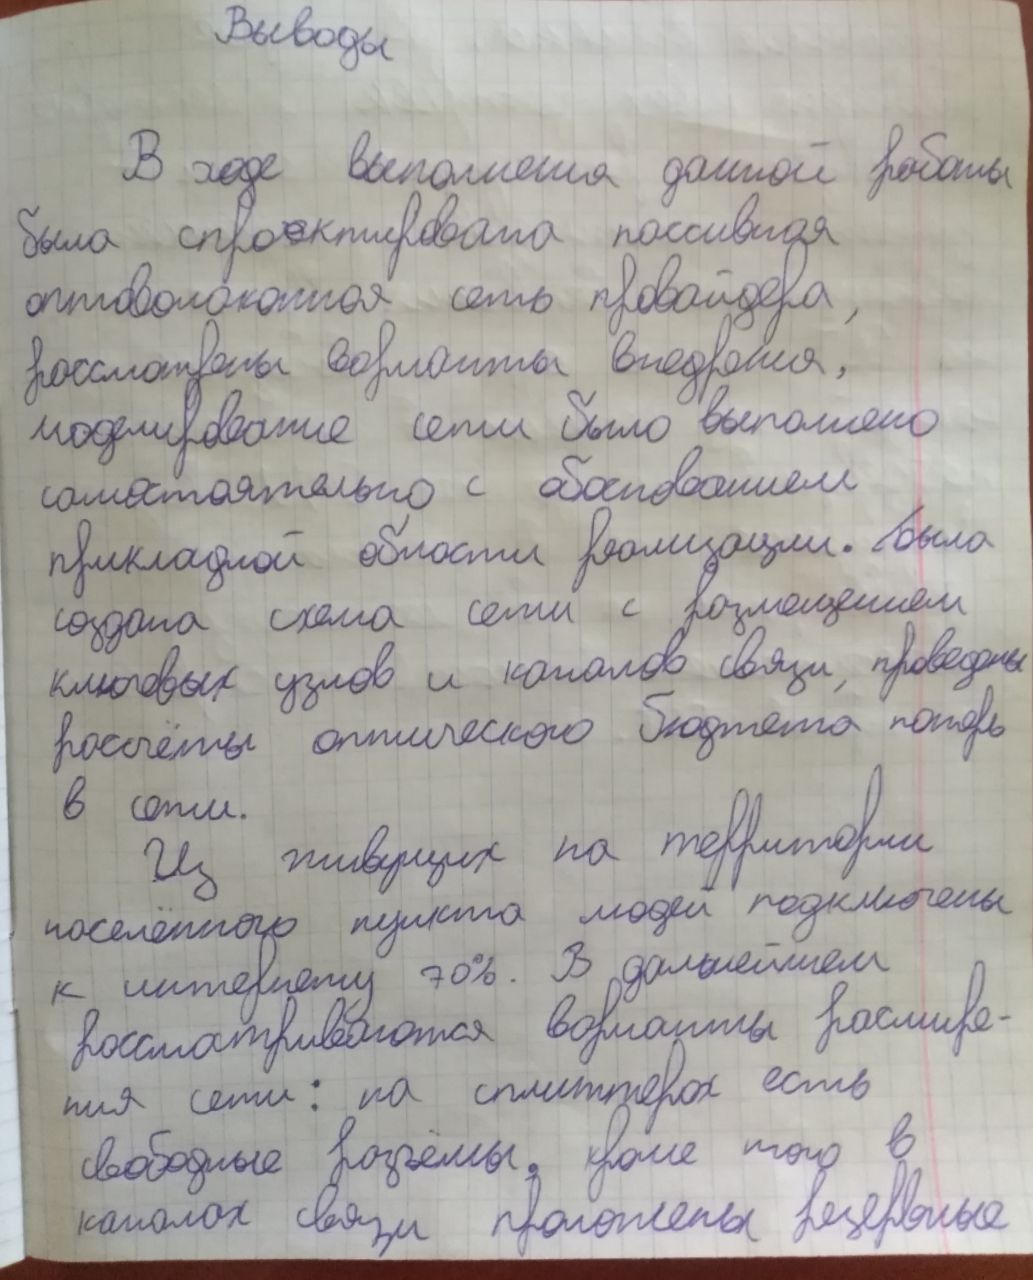 Выводы
В ходе выполнения данной работы
была спроектирована пассивная
оптоволоконная сеть провайдера,
рассмотрены варианты внедрения,
моделирование сети было выполнено
самостоятельно с обоснованием
прикладной области реализации. Была
создана схема сети с размещением
ключевых узлов и каналов связи, проведены
рассчёты оптического бюджета потерь
в сети.
Из живущих на территории
населённого пункта людей подключены
к интернету 70%. В дальнейшем
рассматриваются варианты расшире-
ния сети: на сплиттерах есть
свободные разъёмы, кроме того в
каналах связи проложены резервные